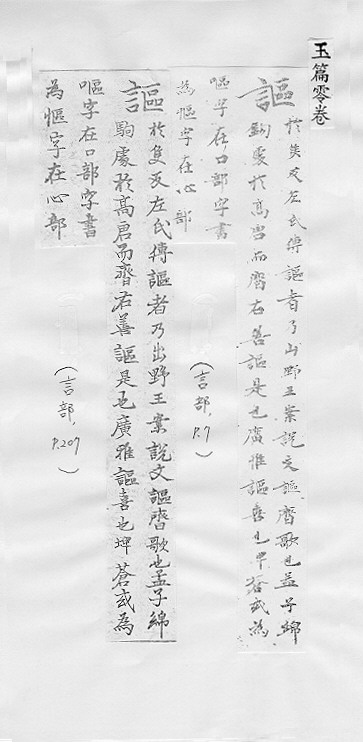 玉篇零卷
謳 於侯反左氏傳謳者乃出野王案說文謳齊歌也孟子緜
駒處於高唐而齊右善謳是也廣雅謳喜也埤蒼或為
嘔字在口部字書
為慪字在心部
(言部, P.7)
謳 於隻反左氏傳謳者乃出野王案說文謳齊歌也孟子綿
駒處於高唐而齊右善謳是也廣雅謳喜也埤蒼或為
嘔字在口部字書
為慪字在心部
(言部, P.209)